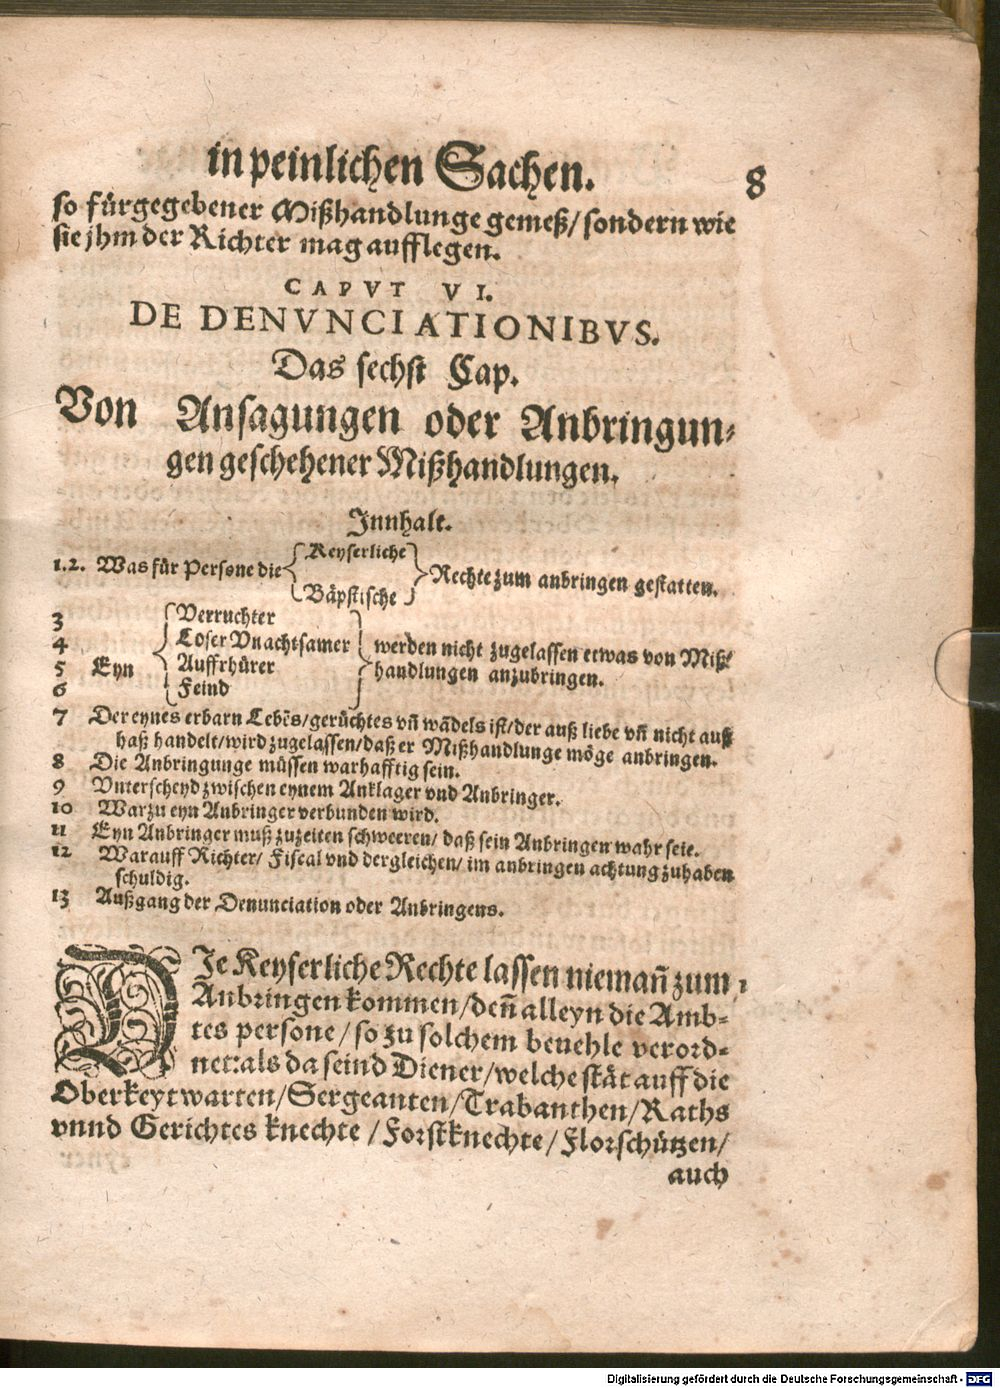 in peinlichen Sachen. 8
so fürgegebener Mißhandlunge gemeß/ sondern wie
sie jhm der Richter mag aufflegen.
CAPVT VI.
DE DENVNCIATIONIBVS.
Das sechst Cap.
Von Ansagungen oder Anbringun-
gen geschehener Mißhandlungen.
Innhalt.
1.2. Was für Persone die { Keyserliche Bäpstische } Rechte zum anbringen gestatten.
3 Verruchter
4 Loser Vnachtsamer
5 Eyn Auffrhürer
6 Feind
werden nicht zugelassen etwas von Miß-
handlungen anzubringen.
7 Der eynes erbarn Lebẽs/ gerüchtes vñ wãdels ist/ der auß liebe vñ nicht auß
haß handelt/ wird zugelassen/ daß er Mißhandlunge möge anbringen.
8 Die Anbringunge müssen warhafftig sein.
9 Vnterscheyd zwischen eynem Anklager vnd Anbringer.
10 Warzu eyn Anbringer verbunden wird.
11 Eyn Anbringer muß zuzeiten schweeren/ daß sein Anbringen wahr seie.
12 Warauff Richter/ Fiscal vnd dergleichen/ im anbringen achtung zuhaben
schuldig.
13 Außgang der Denunciation oder Anbringens.
DIe Keyserliche Rechte lassen niemañ zum 1
Anbringen kommen/ deñ alleyn die Amb-
tes persone/ so zu solchem beuehle verord-
net: als da seind Diener/ welche stät auff die
Oberkeyt warten/ Sergeanten/ Trabanthen/ Raths
vnnd Gerichtes knechte/ Forstknechte/ Florschützen/
auch
Digitalisierung gefördert durch die Deutsche Forschungsgemeinschaft - DFG